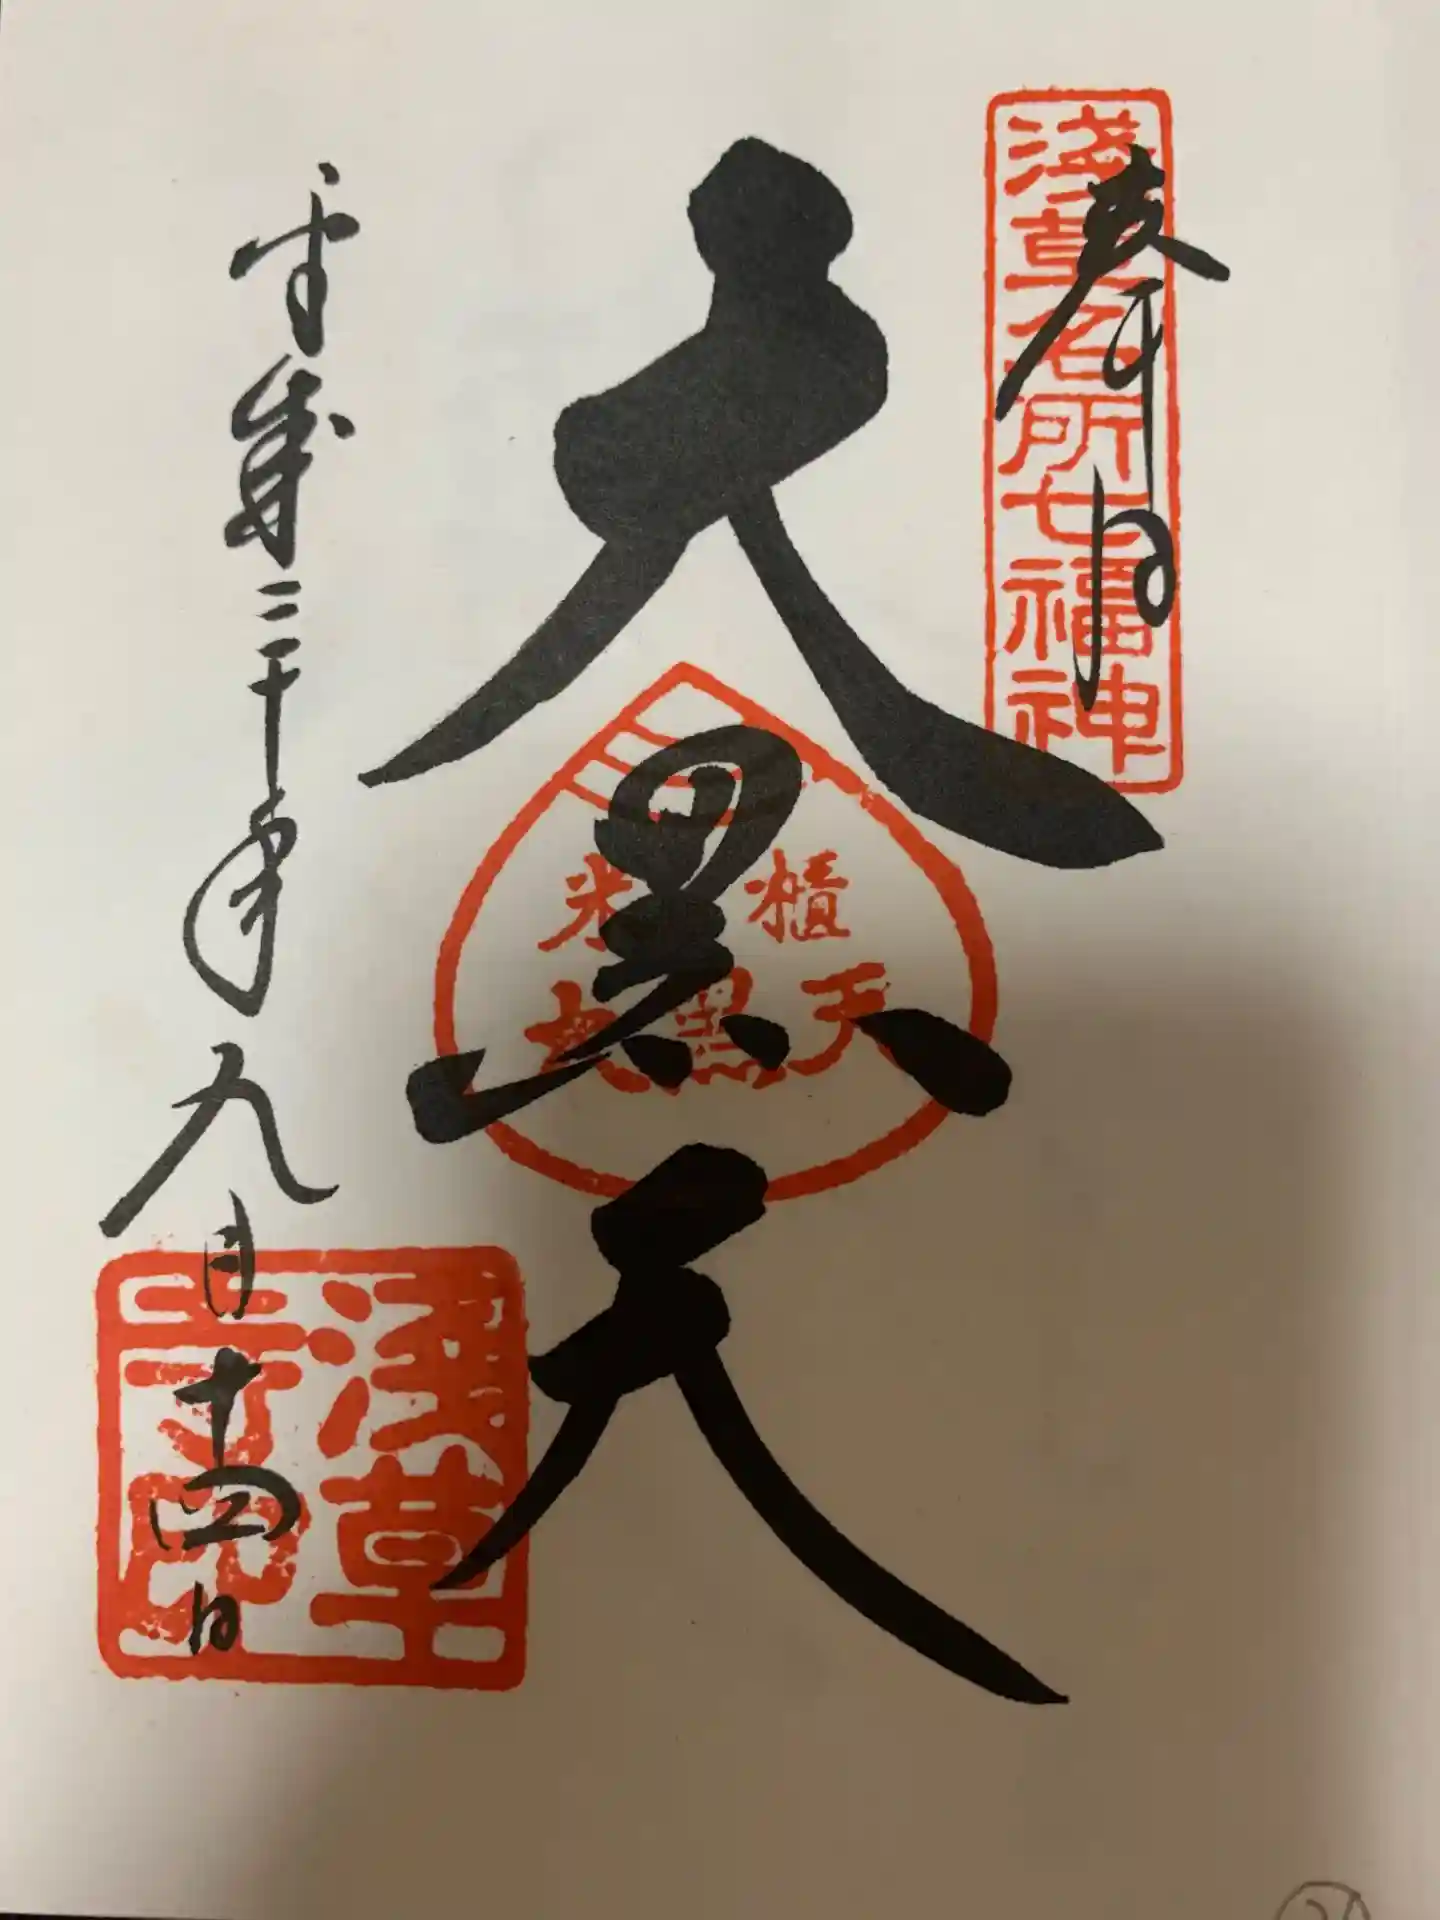 奉拝
浅草名所七福神
大黒天
米櫃
大黒天
平成三十年九月十四日
浅草
寺印